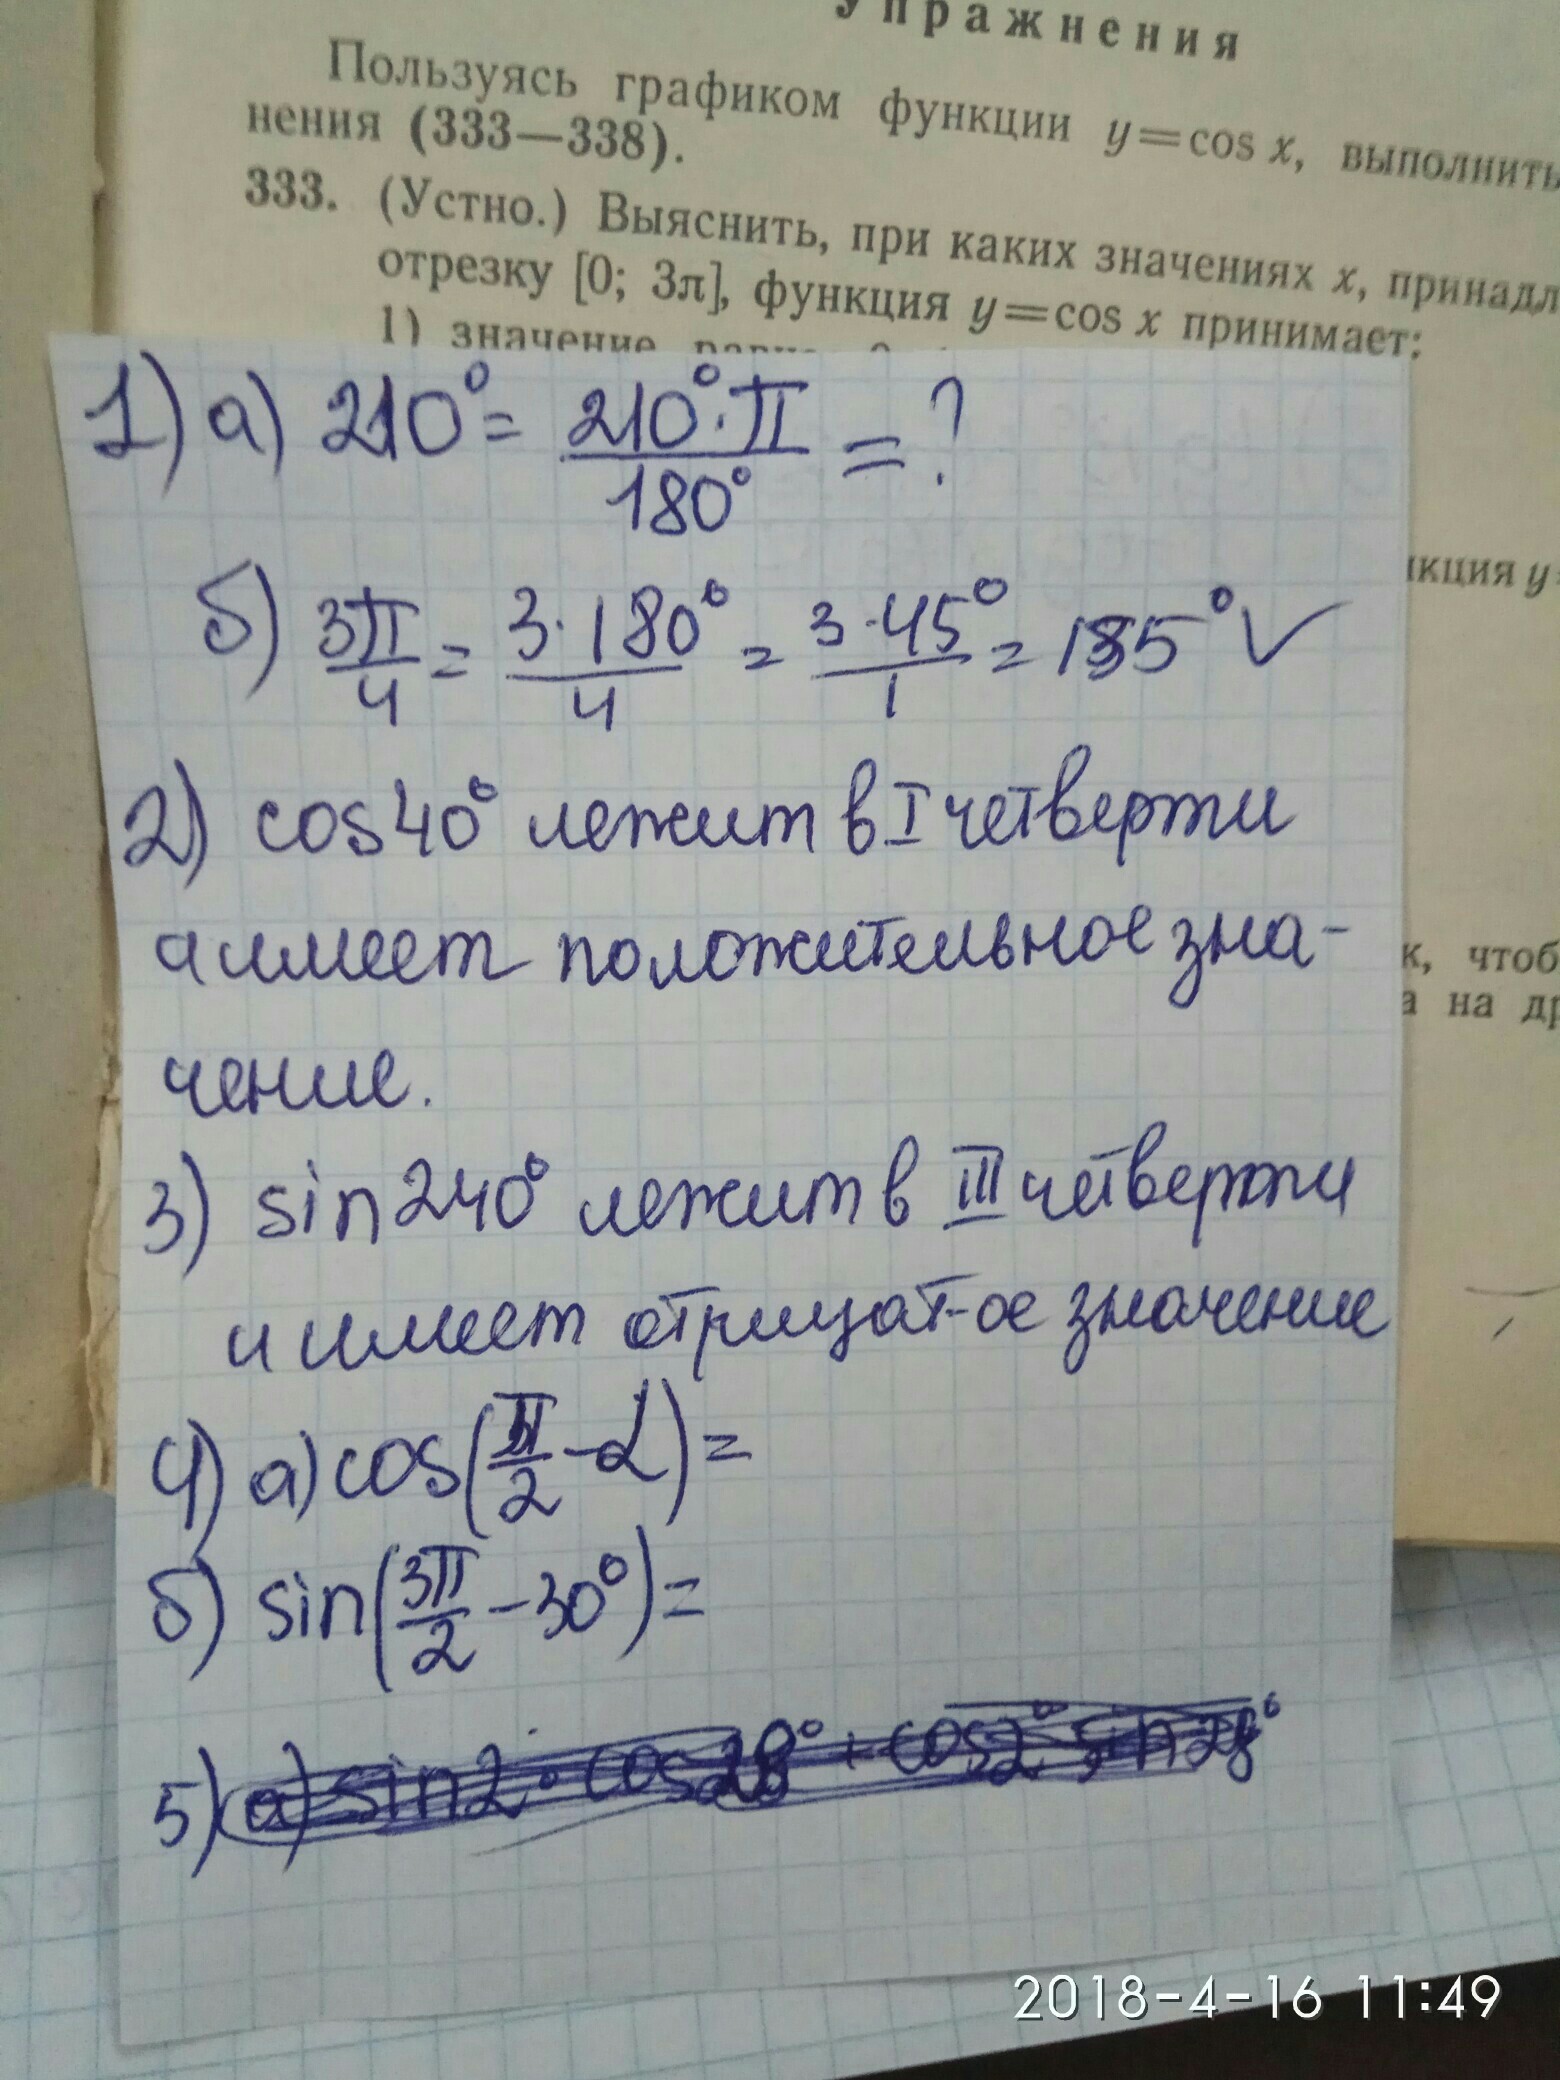 Упражнения
Пользуясь графиком функции y=cos x, выполнить
нения (333—338).
333. (Устно.) Выяснить, при каких значениях x, принадл
отрезку [0; 3π], функция y=cos x принимает:
1) значение
1) а) 210° = 210°·π/180° = ?
нкция y=
б) 3π/4 = 3·180°/4 = 3·45°/1 = 135° ✓
2) cos40° лежит в I четверти
и имеет положительное зна-
к, чтоб
а на др
чение.
3) sin240° лежит в III четверти
и имеет отрицат-ое значение
4) а) cos(π/2 - α) =
б) sin(3π/2 - 30°) =
5) а) sin2° · cos28° + cos2° sin28°
2018-4-16 11:49